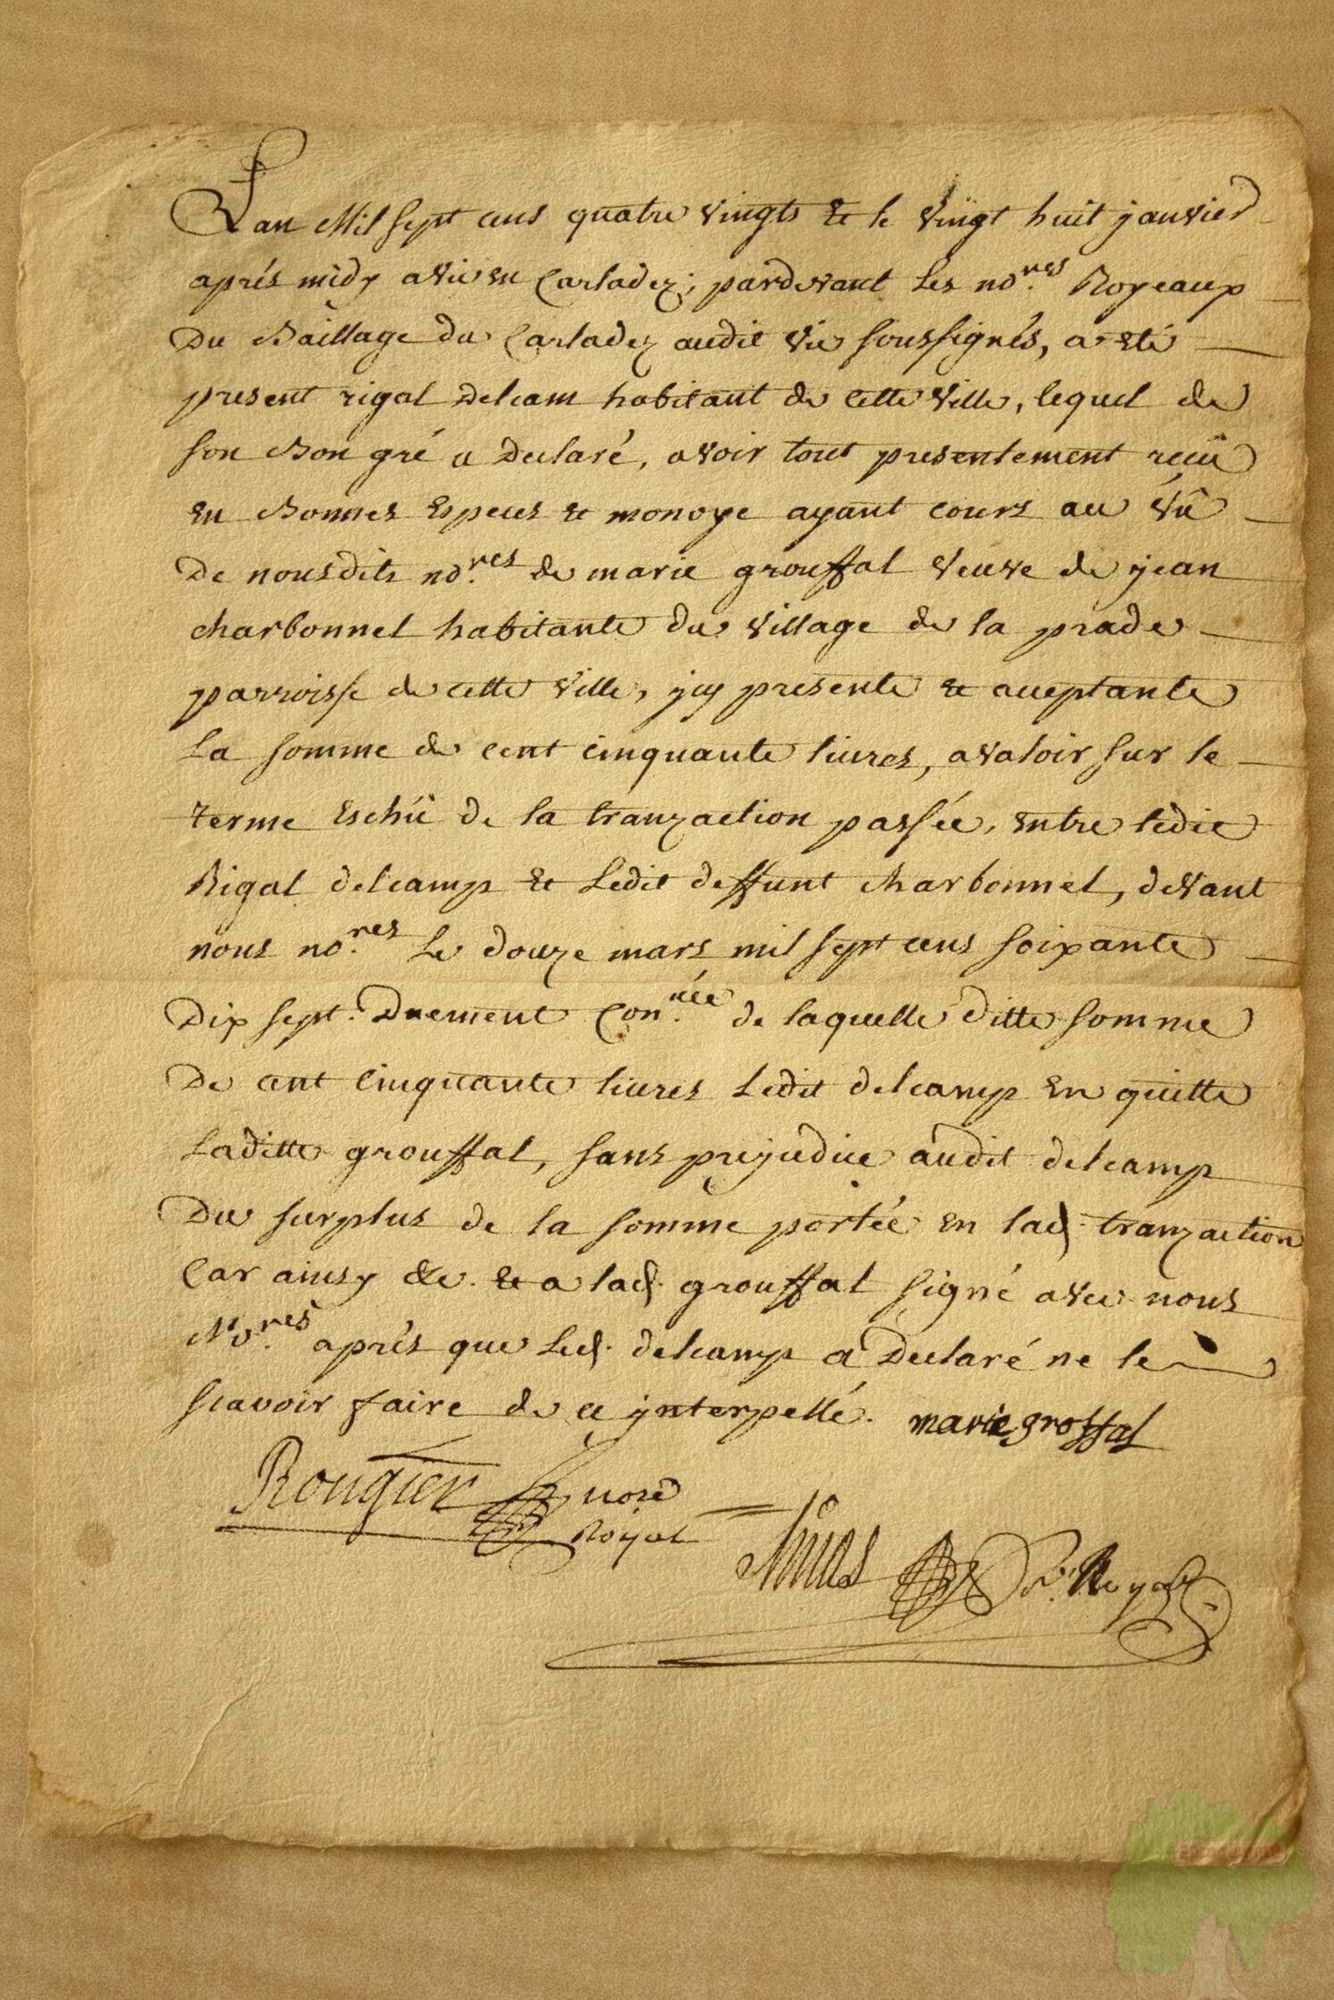 L'an Mil sept cens quatre vingts & le vingt huit janvier
aprés midy a vic en Carladez; pardevant Les no.res Royeaux
Du Baillage du Carladez audit vic soussignés, a eté
present rigal Delcam habitant de cette ville, lequel de
son Bon gré a Declaré, avoir tout presentement reçû
en Bonnes Especes & monoye ayant cours au vû
De nousdits no.res de marie grouffal veuve de jean
charbonnel habitante du village de la prade
parroisse de cette ville, jcy presente & acceptante
La somme de cent cinquante livres, a valoir sur le
terme Eschû de la tranzaction passée, entre ledit
Rigal delcamp & Ledit deffunt charbonnel, devant
nous no.res Le douze mars mil sept cens soixante
Dix sept. Duement Con.née de laquelle ditte somme
De cent cinquante livres Ledit delcamp En quitte
Laditte grouffal, sans prejudice audit delcamp
Du surplus de la somme portée en lad. tranzaction
Car ainsy &c. & a lad. grouffal signé avec nous
No.res aprés que Led. delcamp a Declaré ne le
scavoir faire de ce ynterpellé. marie groffal
Rougier nore
Royal
No.re Royal